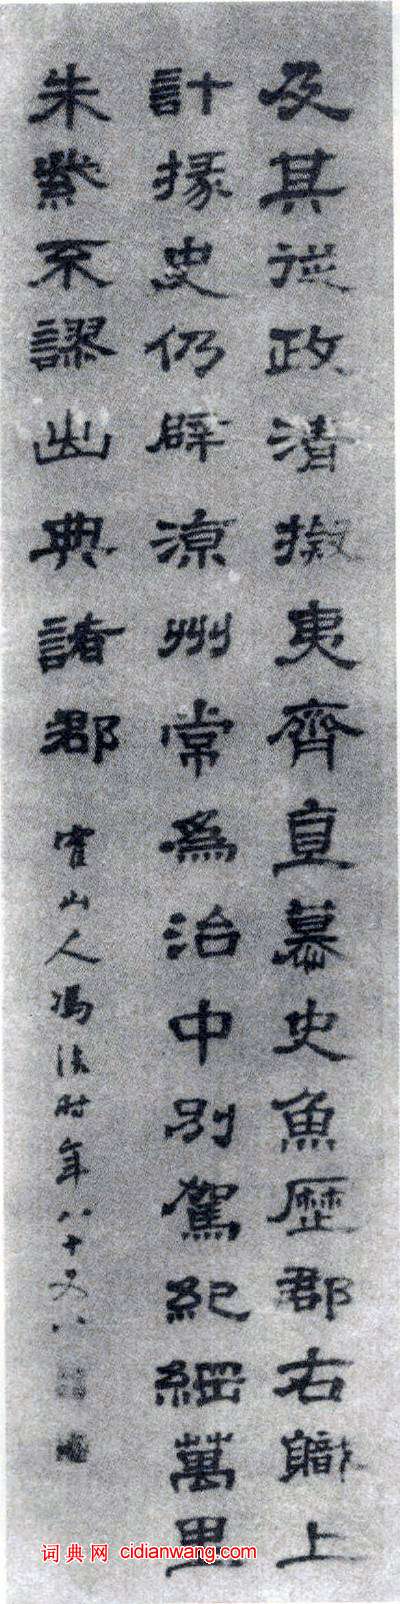 及其從政清擬夷齊直慕史魚歷郡右職上
計掾史仍辟涼州常為治中別駕紀綱萬里
朱紫不謬出典諸郡
霍山人馮時年八十又八
词典网 cidianwang.com